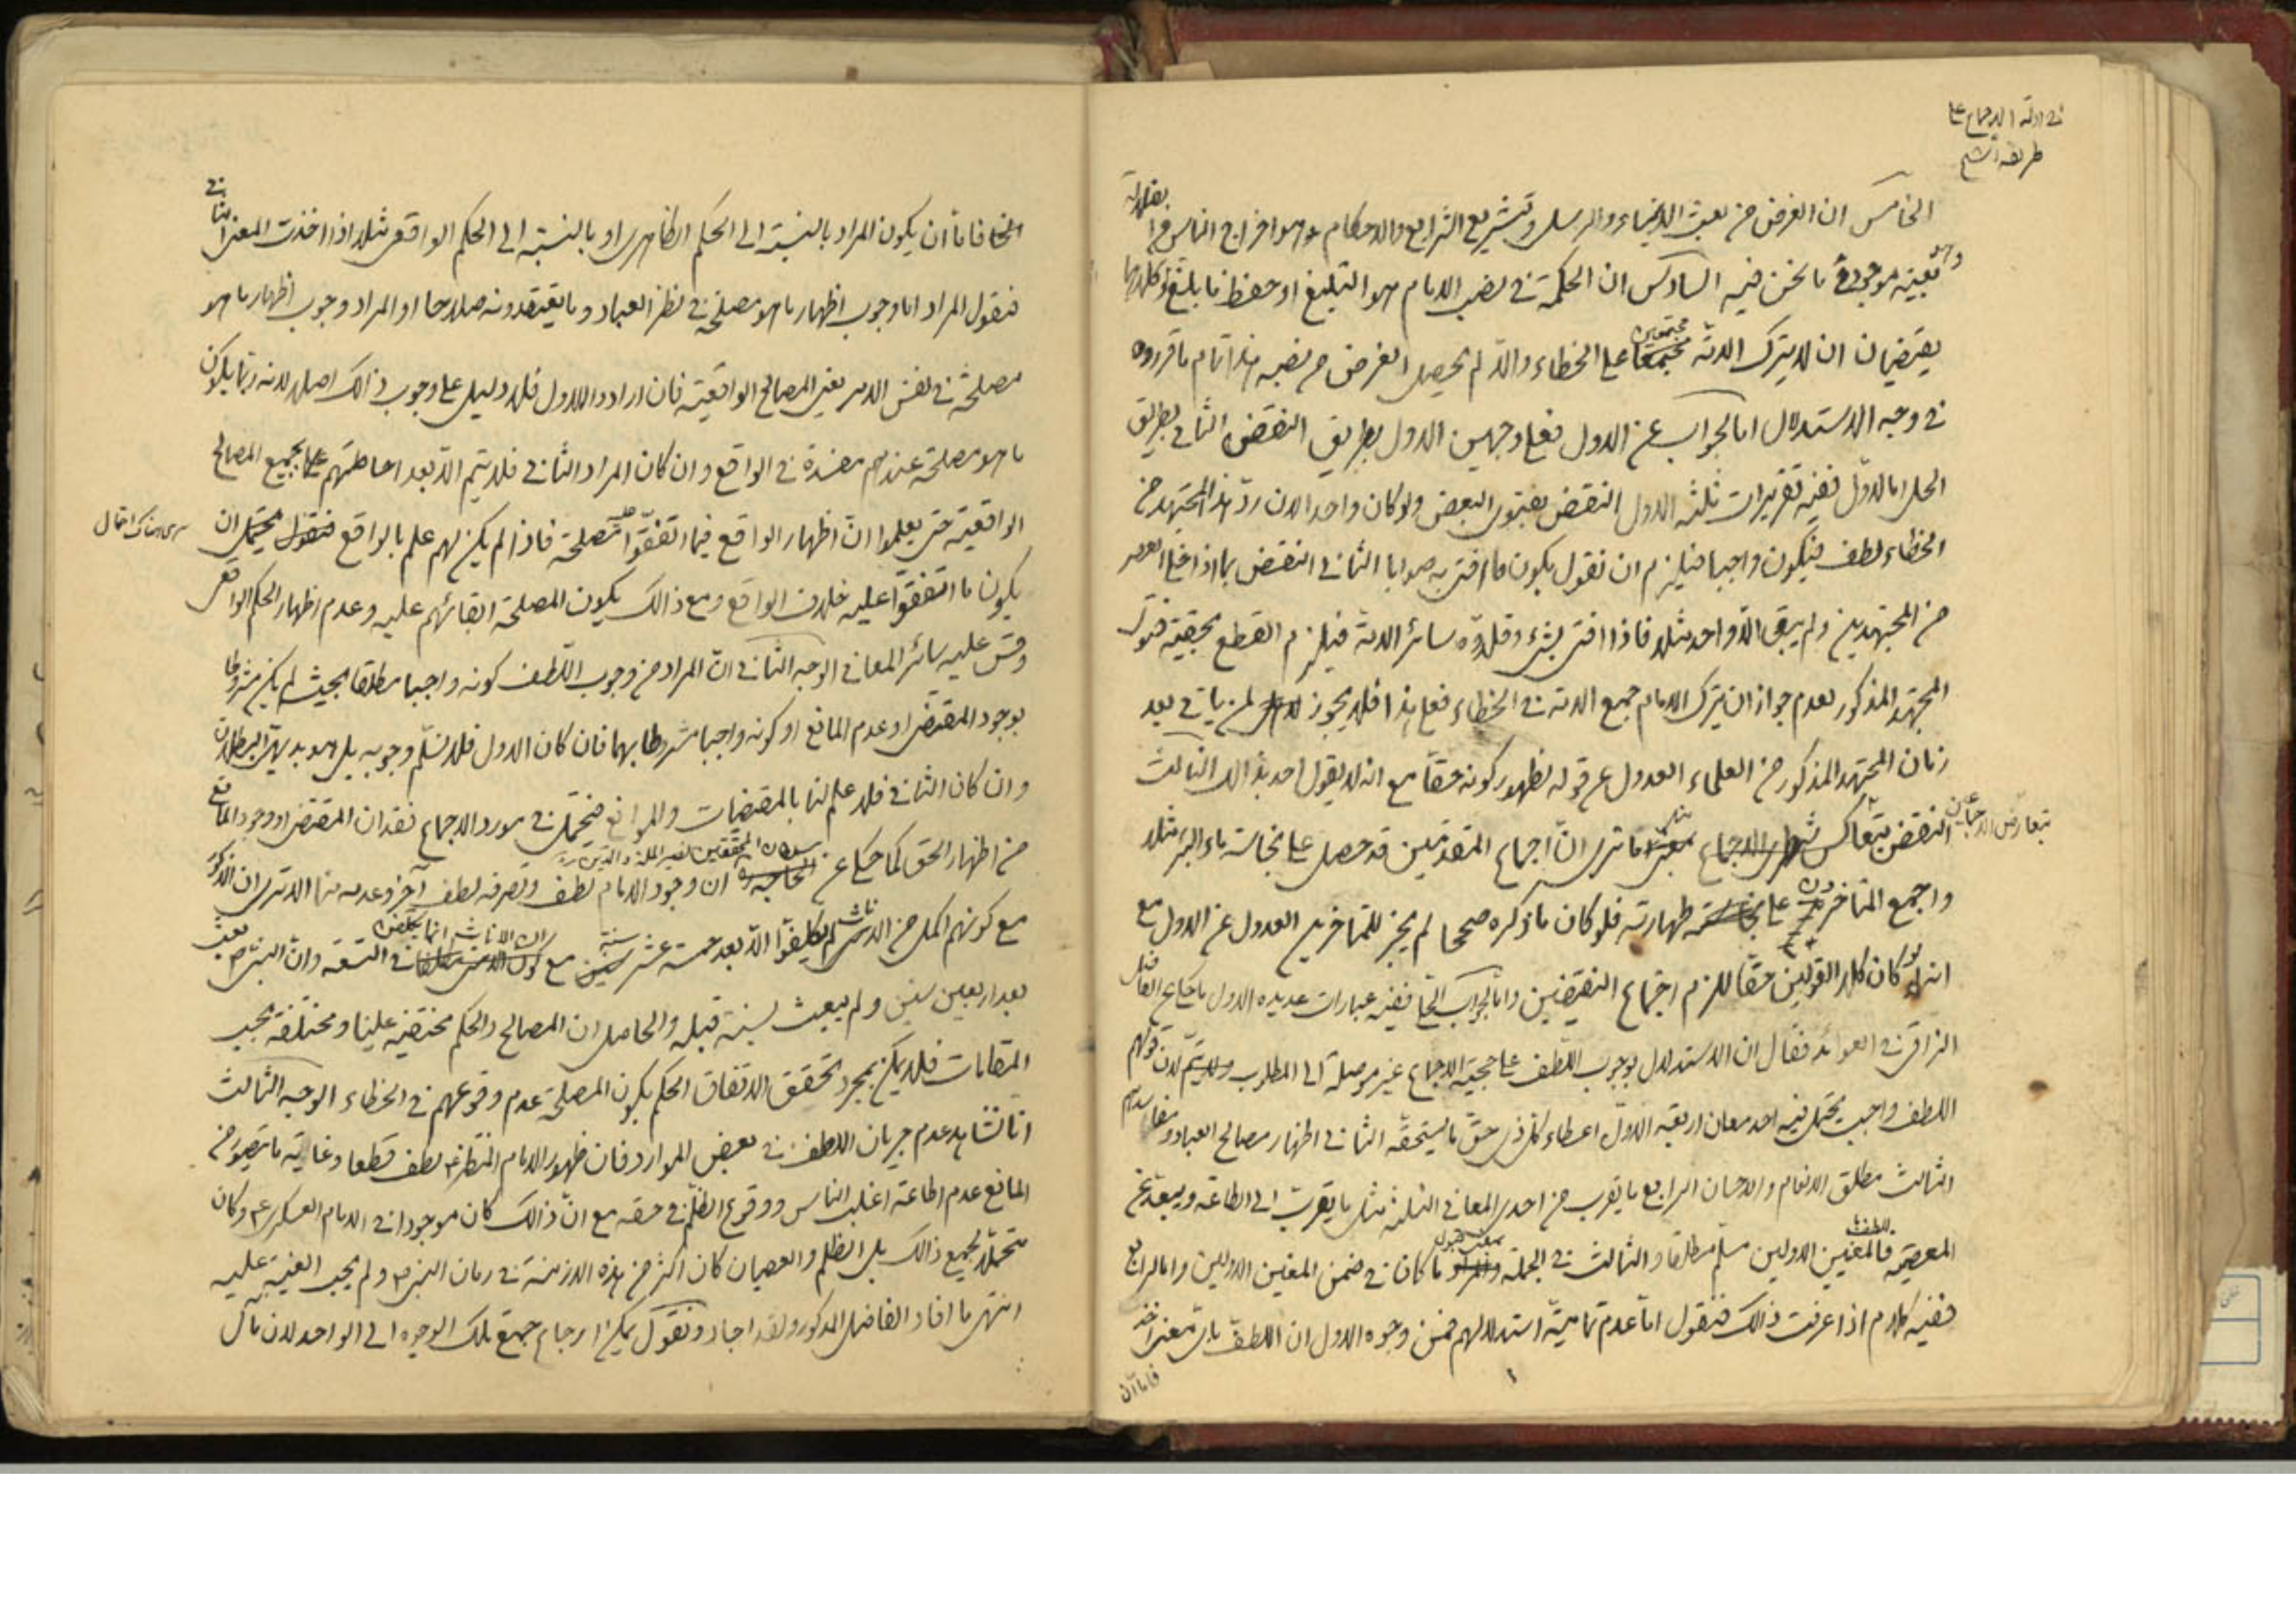 في ادلة الاجماع على
طريقة الشيخ
الخامس ان الغرض من بعث الانبياء والرسل وتشريع الشرايع والاحكام هو اخراج الناس من
وهو بعينه موجود فيما نحن فيه السادس ان الحكمة في نصب الامام هو التبليغ او حفظ ما بلغ وكلاهما
يقتضيان ان لا يترك الامة مجتمعين على الخطاء والا لم يحصل الغرض من نصبه هذا تمام ما قرروه
في وجه الاستدلال اما الجواب عن الاول فعلى وجهين الاول بطريق النقض الثاني بطريق
الحل اما الاول ففيه تقريرات ثلثة الاول النقض بفتوى البعض ولو كان واحدا لان ردّ هذا المجتهد من
الخطاء لطف فيكون واجبا فيلزم ان نقول بكون ما افتى به صوابا الثاني النقض بما اذا خلا العصر
من المجتهدين ولم يبق الا واحد مثلا فاذا افتى بشيء وقلّده سائر الامة فيلزم القطع بحقية فتوى
المجتهد المذكور لعدم جواز ان يترك الامام جميع الامة في الخطاء فعلى هذا فلا يجوز لمن ياتي بعد
زمان المجتهد المذكور من العلماء العدول عن قوله لظهور كونه حقا مع انه لا يقول احد بذالك الثالث
النقض بتعارض الاجماعين الا ترى انّ اجماع المتقدمين قد حصل على نجاسة ماء البئر مثلا
واجمع المتاخرون على طهارته فلو كان ما ذكره صحيحا لم يجز للمتاخرين العدول عن الاول مع
انه لو كان كلا القولين حقا للزم اجتماع النقيضين واما الجواب الحلي ففيه عبارات عديدة الاول ما حكي عن الفاضل
النراقي في العوائد فقال ان الاستدلال بوجوب اللطف على حجية الاجماع غير موصلة الى المطلوب ولا يتم لان قولهم
اللطف واجب يحتمل فيه احد معان اربعة الاول اعطاء كل ذي حق ما يستحقه الثاني اظهار مصالح العباد ومفاسدهم
الثالث مطلق الانعام والاحسان الرابع ما يقرب من احدى المعاني الثلثة مثل ما يقرب الى الطاعة ويبعد عن
المعصية فاللطف بالمعنيين الاولين مسلّم مطلقا والثالث في الجملة ما كان في ضمن المعنيين الاولين واما الرابع
ففيه كلام اذا عرفت ذالك فنقول امّا عدم تمامية استدلالهم فمن وجوه الاول ان اللطف باي معنى اخذ
فاما ان
فاما أن يكون المراد بالنسبة الى الحكم الظاهري او بالنسبة الى الحكم الواقعي مثلا اذا اخذت المعنى الثاني
فنقول المراد اما وجوب اظهار ما هو مصلحة في نظر العباد وما يعتقدونه صلاحا او المراد وجوب اظهار ما هو
مصلحة في نفس الامر يعني المصالح الواقعية فان ارادوا الاول فلا دليل على وجوب ذالك اصلا لانه ربما يكون
ما هو مصلحة عندهم مفسدة في الواقع وان كان المراد الثاني فلا يتم الا بعد احاطتهم بجميع المصالح
الواقعية حتى يعلموا انّ اظهار الواقع فيما اتفقوا مصلحة فاذا لم يكن لهم علم بالواقع فنقول يحتمل ان
يكون ما اتفقوا عليه خلاف الواقع ومع ذالك يكون المصلحة ابقائهم عليه وعدم اظهار الحكم الواقعي
وقس عليه سائر المعاني الوجه الثاني انّ المراد من وجوب اللطف كونه واجبا مطلقا بحيث لم يكن مشروطا
بوجود المقتضي او عدم المانع او كونه واجبا مشروطا بهما فان كان الاول فلا نسلّم وجوبه بل هو بديهي البطلان
وان كان الثاني فلا علم لنا بالمقتضيات والموانع فيحتمل في مورد الاجماع فقدان المقتضي او وجود المانع
من اظهار الحق كما حكي عن سلطان المحققين نصير الملة والدين ره ان وجود الامام لطف وتصرفه لطف آخر وعدمه منا الا ترى ان الذكور
مع كونهم اكمل من الاناث لم يكلفوا الا بعد خمسة عشر سنة مع ان الاناث انما يكلفن في التسعة وان النبي ص بعث
بعد اربعين سنين ولم يبعث لسنة قبله والحاصل ان المصالح والحكم مختفية علينا ومختلفة بحسب
المقامات فلا يمكن بمجرد تحقق الاتفاق الحكم بكون المصلحة عدم وقوعهم في الخطاء الوجه الثالث
انا نشاهد عدم جريان اللطف في بعض الموارد فان ظهور الامام المنتظر ع لطف قطعا وغاية ما يتصور من
المانع عدم اطاعة اغلب الناس ووقوع الظلم في حقه مع انّ ذالك كان موجودا في الامام العسكري ع وكان
متحملا لجميع ذالك بل الظلم والعصيان كان اكثر من هذه الازمنة في زمان النبي ص ولم يجب الغيبة عليه
انتهى ما افاد الفاضل المذكور ولقد اجاد ونقول يمكن ارجاع جميع تلك الوجوه الى الواحد لان مآل